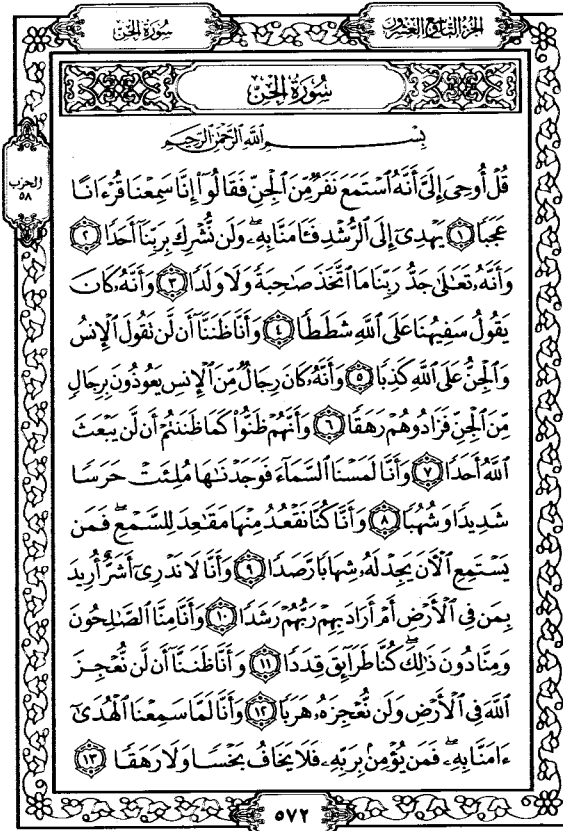 الجزء التاسع والعشرون
سورة الجن
سُورَةُ الجِنّ
بِسْمِ اللَّهِ الرَّحْمَٰنِ الرَّحِيمِ
الحزب
٥٨
قُلْ أُوحِىَ إِلَىَّ أَنَّهُ ٱسْتَمَعَ نَفَرٌ مِّنَ ٱلْجِنِّ فَقَالُوٓا۟ إِنَّا سَمِعْنَا قُرْءَانًا
عَجَبًا ١ يَهْدِىٓ إِلَى ٱلرُّشْدِ فَـَٔامَنَّا بِهِۦ ۖ وَلَن نُّشْرِكَ بِرَبِّنَآ أَحَدًا ٢
وَأَنَّهُۥ تَعَـٰلَىٰ جَدُّ رَبِّنَا مَا ٱتَّخَذَ صَـٰحِبَةً وَلَا وَلَدًا ٣ وَأَنَّهُۥ كَانَ
يَقُولُ سَفِيهُنَا عَلَى ٱللَّهِ شَطَطًا ٤ وَأَنَّا ظَنَنَّآ أَن لَّن تَقُولَ ٱلْإِنسُ
وَٱلْجِنُّ عَلَى ٱللَّهِ كَذِبًا ٥ وَأَنَّهُۥ كَانَ رِجَالٌ مِّنَ ٱلْإِنسِ يَعُوذُونَ بِرِجَالٍ
مِّنَ ٱلْجِنِّ فَزَادُوهُمْ رَهَقًا ٦ وَأَنَّهُمْ ظَنُّوا۟ كَمَا ظَنَنتُمْ أَن لَّن يَبْعَثَ
ٱللَّهُ أَحَدًا ٧ وَأَنَّا لَمَسْنَا ٱلسَّمَآءَ فَوَجَدْنَـٰهَا مُلِئَتْ حَرَسًا
شَدِيدًا وَشُهُبًا ٨ وَأَنَّا كُنَّا نَقْعُدُ مِنْهَا مَقَـٰعِدَ لِلسَّمْعِ ۖ فَمَن
يَسْتَمِعِ ٱلْـَٔانَ يَجِدْ لَهُۥ شِهَابًا رَّصَدًا ٩ وَأَنَّا لَا نَدْرِىٓ أَشَرٌّ أُرِيدَ
بِمَن فِى ٱلْأَرْضِ أَمْ أَرَادَ بِهِمْ رَبُّهُمْ رَشَدًا ١٠ وَأَنَّا مِنَّا ٱلصَّـٰلِحُونَ
وَمِنَّا دُونَ ذَٰلِكَ ۖ كُنَّا طَرَآئِقَ قِدَدًا ١١ وَأَنَّا ظَنَنَّآ أَن لَّن نُّعْجِزَ
ٱللَّهَ فِى ٱلْأَرْضِ وَلَن نُّعْجِزَهُۥ هَرَبًا ١٢ وَأَنَّا لَمَّا سَمِعْنَا ٱلْهُدَىٰٓ
ءَامَنَّا بِهِۦ ۖ فَمَن يُؤْمِنۢ بِرَبِّهِۦ فَلَا يَخَافُ بَخْسًا وَلَا رَهَقًا ١٣
٥٧٢